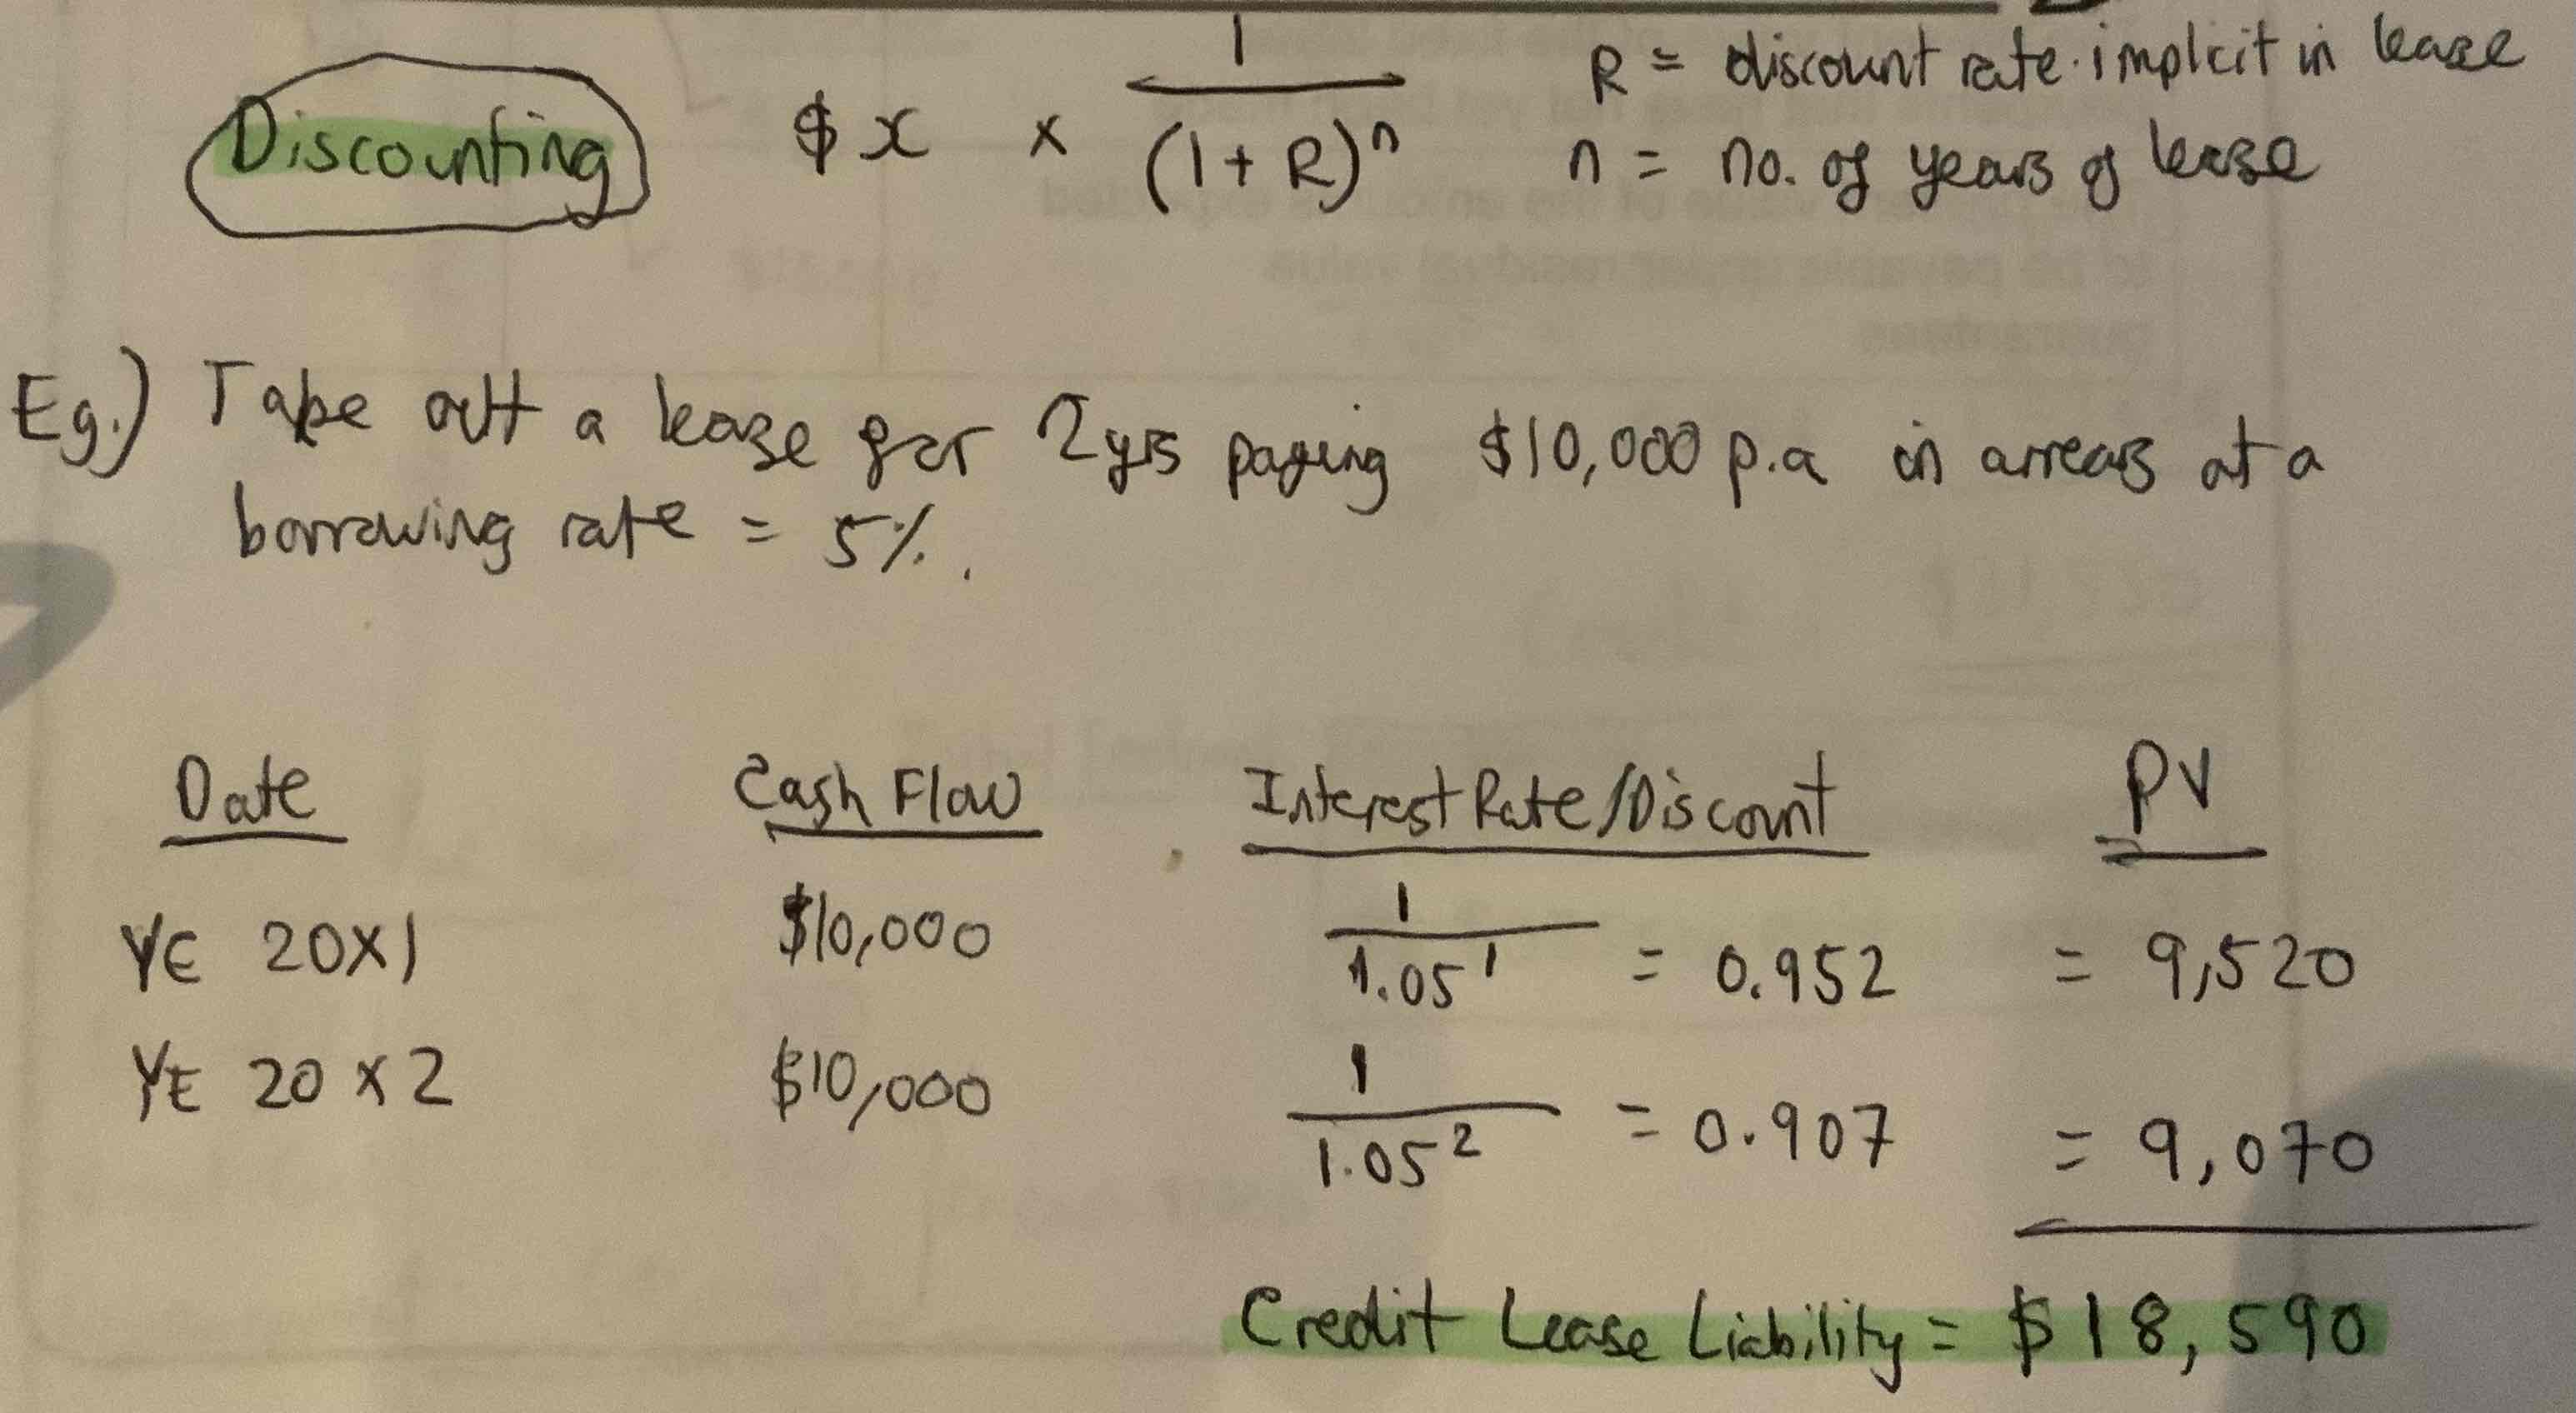 Discounting $x × 1/(1+R)ⁿ R = discount rate implicit in lease
n = no. of years of lease
Eg.) Take out a lease for 2yrs paying $10,000 p.a in arrears at a
borrowing rate = 5%.
Date Cash Flow Interest Rate/Discount PV
YE 20X1 $10,000 1/1.05¹ = 0.952 = 9,520
YE 20X2 $10,000 1/1.05² = 0.907 = 9,070
Credit Lease Liability = $18,590